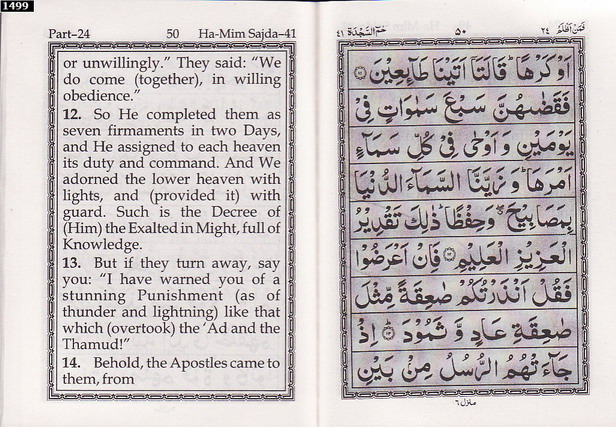 1499
Part–24 50 Ha-Mim Sajda–41
or unwillingly.” They said: “We
do come (together), in willing
obedience.”
12. So He completed them as
seven firmaments in two Days,
and He assigned to each heaven
its duty and command. And We
adorned the lower heaven with
lights, and (provided it) with
guard. Such is the Decree of
(Him) the Exalted in Might, full of
Knowledge.
13. But if they turn away, say
you: “I have warned you of a
stunning Punishment (as of
thunder and lightning) like that
which (overtook) the ‘Ad and the
Thamud!”
14. Behold, the Apostles came to
them, from
فَمَنْ اَظْلَمُ ٢٤ ٥٠ حٰمٓ السَّجْدَة ٤١
اَوْ كَرْهًا ؕ قَالَتَاۤ اَتَيْنَا طَآئِعِيْنَ ﴿۱۱﴾
فَقَضٰىهُنَّ سَبْعَ سَمٰوَاتٍ فِيْ
يَوْمَيْنِ وَ اَوْحٰى فِيْ كُلِّ سَمَآءٍ
اَمْرَهَا ؕ وَ زَيَّنَّا السَّمَآءَ الدُّنْيَا
بِمَصَابِيْحَ ۖ وَ حِفْظًا ؕ ذٰلِكَ تَقْدِيْرُ
الْعَزِيْزِ الْعَلِيْمِ ﴿۱۲﴾ فَاِنْ اَعْرَضُوْا
فَقُلْ اَنْذَرْتُكُمْ صٰعِقَةً مِّثْلَ
صٰعِقَةِ عَادٍ وَّ ثَمُوْدَ ﴿۱۳﴾ اِذْ
جَآءَتْهُمُ الرُّسُلُ مِنْۢ بَيْنِ
منزل ٦